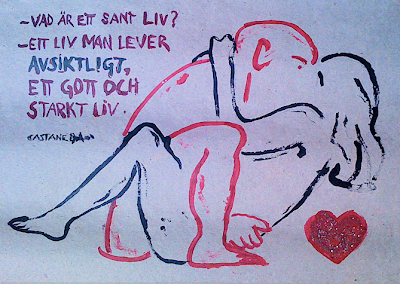 -VAD ÄR ETT SANT LIV?
-ETT LIV MAN LEVER
AVSIKTLIGT,
ETT GOTT OCH
STARKT LIV.